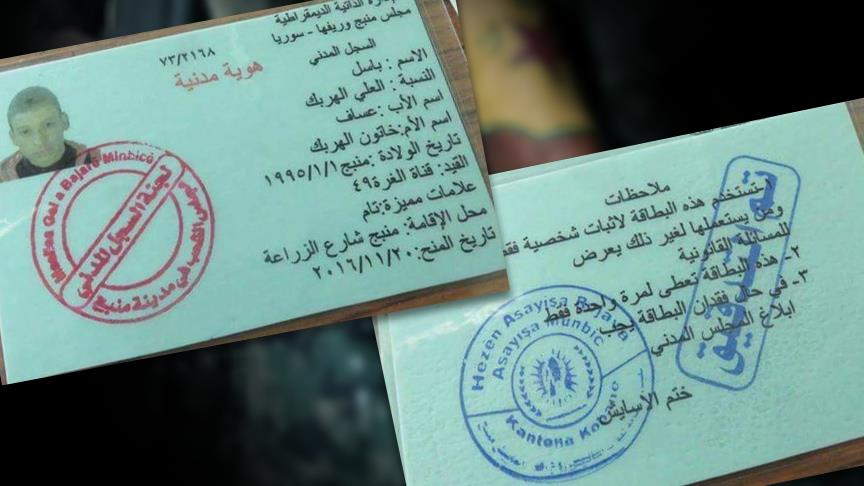 الإدارة الذاتية الديمقراطية
مجلس منبج وريفها - سوريا
السجل المدني
٧٣/٢١٦٨
هوية مدنية
الاسم : باسل
النسبة : العلي الهربك
اسم الأب : عساف
اسم الأم:خاتون الهربك
تاريخ الولادة :منبج١٩٩٥/١/١
القيد: قناة الغرة٤٩
علامات مميزة:تام
محل الإقامة: منبج شارع الزراعة
تاريخ المنح:٢٠١٦/١١/٢٠
لجنة السجل المدني
في مدينة منبج
ملاحظات
١-تستخدم هذه البطاقة لاثبات شخصية فقط
ومن يستعملها لغير ذلك يعرض
للمسائلة القانونية
٢- هذه البطاقة تعطى لمرة واحدة فقط
٣- في حال فقدان البطاقة يجب
ابلاغ المجلس المدني
ختم الأسايش
Hezen Asayişa Bajara
Asayişa Munbic
Kantona Kobanie